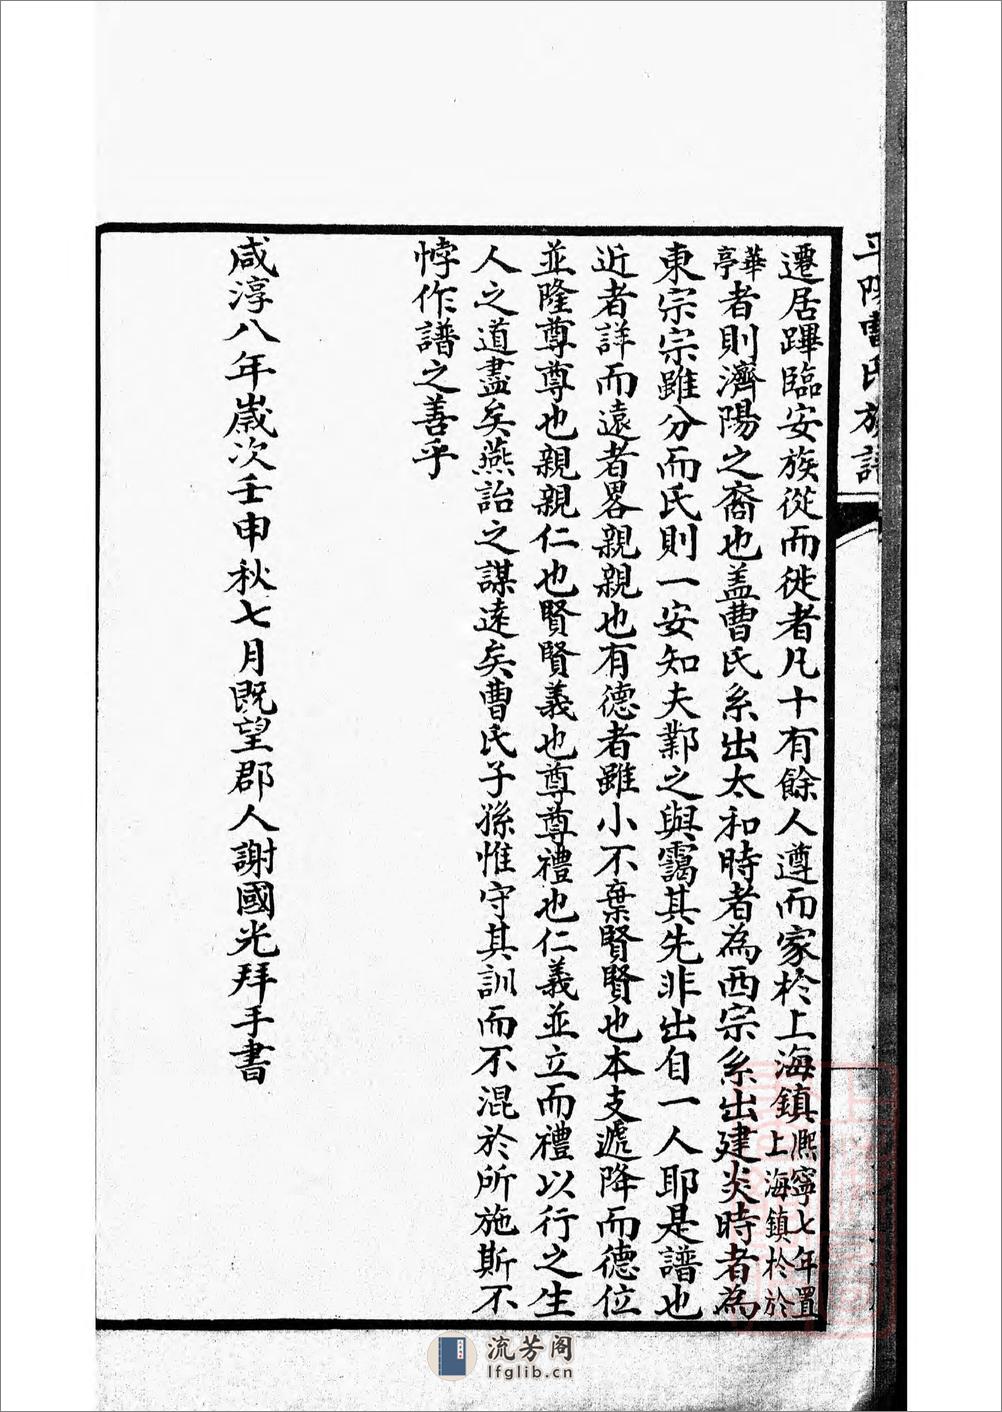 平陽曹氏族譜
遷居蹕臨安族從而徙者凡十有餘人遵而家於上海鎮熙寧七年置上海鎮於於
華亭者則濟陽之裔也盖曹氏系出太和時者為西宗系出建炎時者為
東宗宗雖分而氏則一安知夫鄴之與靄其先非出自一人耶是譜也
近者詳而遠者畧親親也有德者雖小不棄賢賢也本支遞降而德位
並隆尊尊也親親仁也賢賢義也尊尊禮也仁義並立而禮以行之生
人之道盡矣燕詒之謀遠矣曹氏子孫惟守其訓而不混於所施斯不
悖作譜之善乎
咸淳八年歲次壬申秋七月既望郡人謝國光拜手書
流芳阁
lfglib.cn